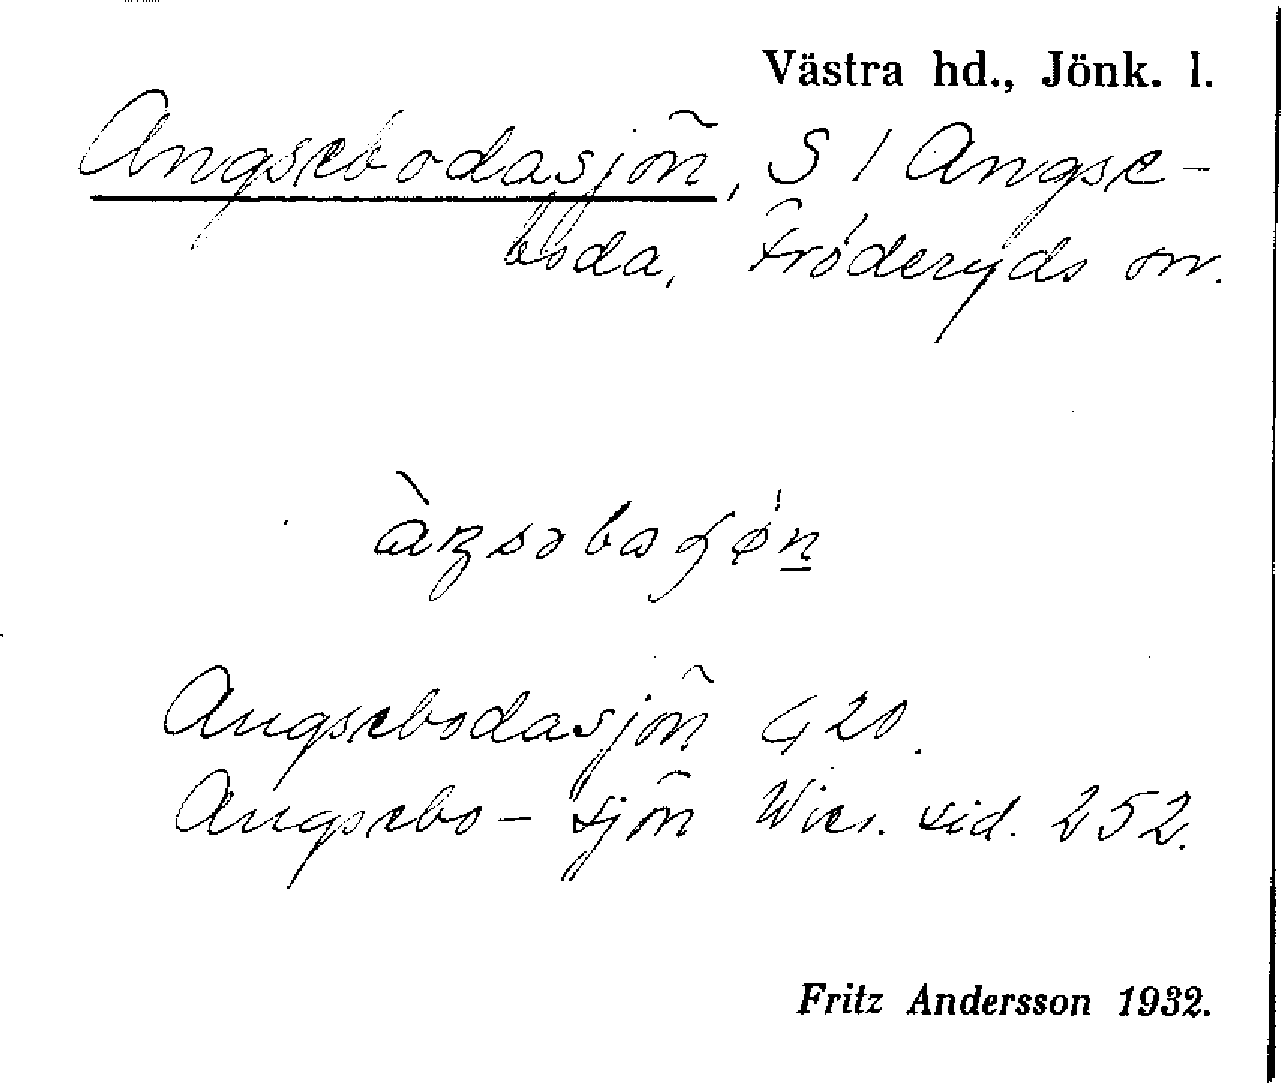 Västra hd., Jönk. l.
Angsebodasjön, S / Angse-
boda, Fröderyds sn.
Angsebodasjön G 20.
Angsebo- sjön Wies. sid. 252.
Fritz Andersson 1932.